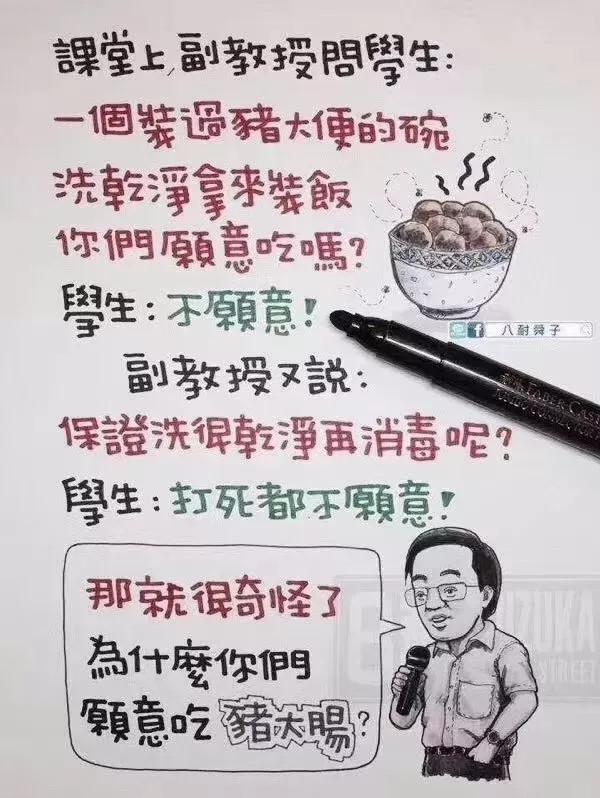 課堂上,副教授問學生:
一個裝過豬大便的碗
洗乾淨拿來裝飯
你們願意吃嗎?
學生:不願意!
八耐舜子
副教授又說:
FABER CAST
保證洗得乾淨再消毒呢?
學生:打死都不願意!
那就很奇怪了
為什麼你們
願意吃豬大腸?
IZUKA
STREET